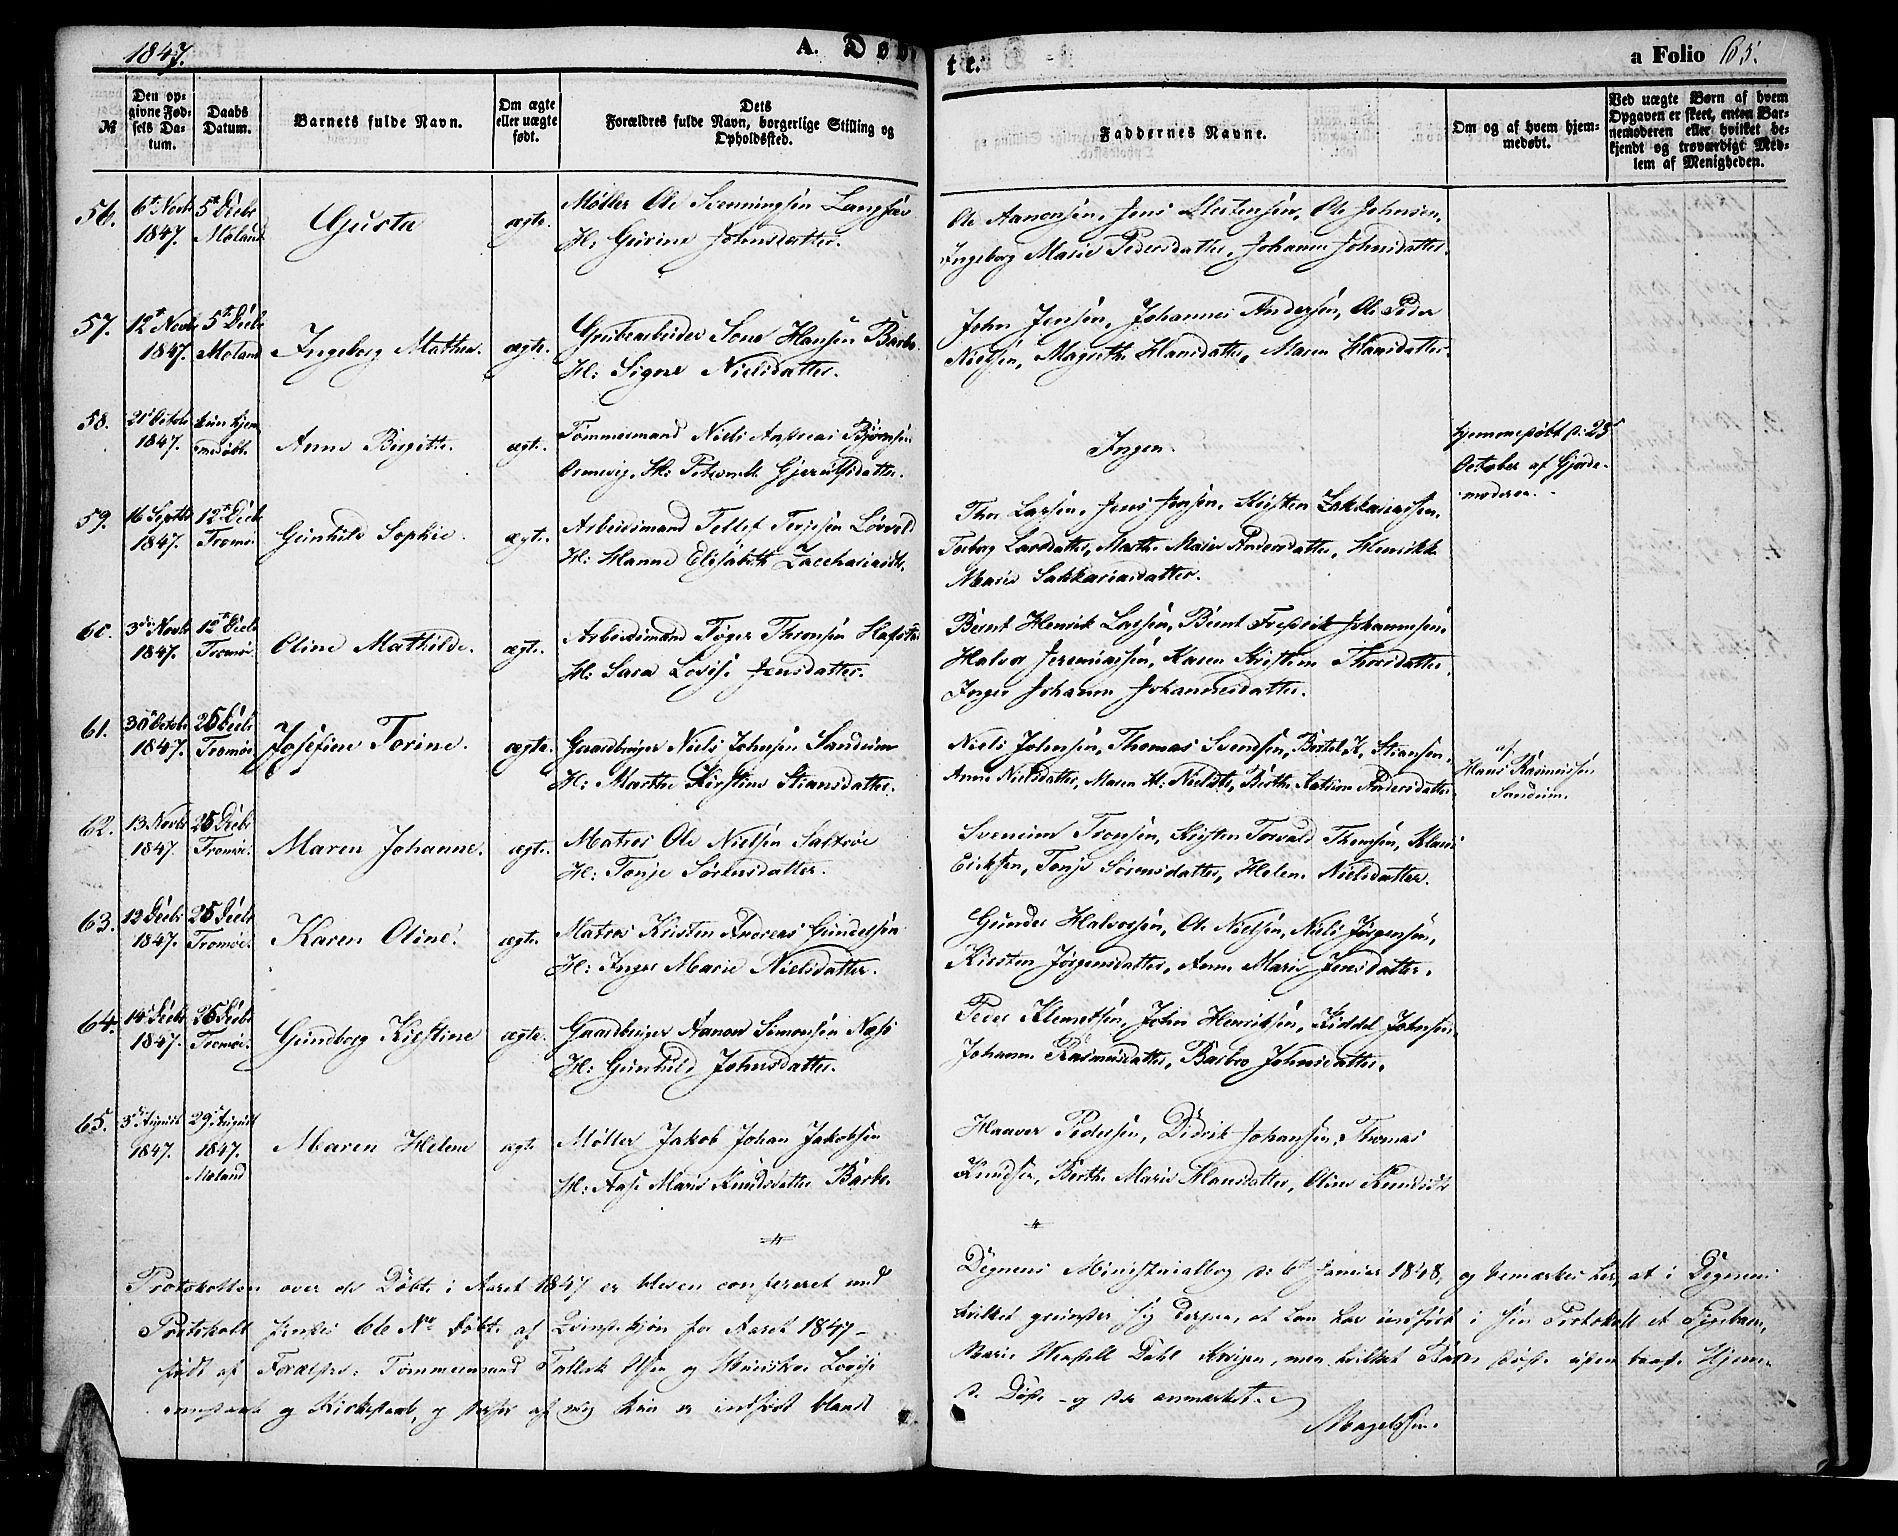 1847.
A. Døbte.
a Folio 65.
№
Den opgivne Fødsels Datum.
Daabs Datum.
Barnets fulde Navn.
Om ægte eller uægte født.
Dets Forældres fulde Navn, borgerlige Stilling og Opholdssted.
Faddernes Navne.
Om og af hvem hjemmedøbt.
Ved uægte Børn af hvem Opgaven er skeet, enten Barnemoderen eller hvilket bekjendt og troværdigt Medlem af Menigheden.
56. 6te Novbr 1847. 5te Decbr Moland Gusta ægte. Møller Ole Svenningsen
H: Gurine Johnsdatter.
Ole Aanonsen, Jens Ellestensen, Ole Johnsen,
Ingeborg Marie Pedersdatter, Johanne Johnsdatter.
57. 12te Novbr 1847. 5te Decbr Moland Ingeborg Mathea. ægte. Grubearbeider Hansen Barbo
H: Signe Nielsdatter.
John Jensen, Johannes Andersen, Ole Peder
Nielsen, Magrethe Hansdatter, Maren Hansdatter.
58. 21de Octobr 1847. kun hjemmedøbt. Anne Birgitte. ægte. Tømmermand Niels Andreas Bjørnsen
H: Gjerulfsdatter.
Ingen.
hjemmedøbt d: 23de
October af Gjordemoderen.
59. 16 Septbr 1847. 12te Decbr Tromø. Gunhild Sophie. ægte. Arbeidsmand Tellef Terjesen Løvold
H: Hanne Elisabeth Zacchariasdtr.
Thor Larsen, Jens Jensen, Kristen Zakkariassen,
Torborg Larsdatter, Marthe Marie Andersdatter, Henrikke
Marie Sakkariasdatter.
60. 3de Novbr 1847. 12te Decbr Tromø. Oline Mathilde. ægte. Arbeidsmand Tøger Thronsen
H: Sara Lovise Jensdatter.
Bernt Henrik Larsen, Bernt Fredrik Johannesen,
Halvor Jeremiassen, Karen Kirstine Thorsdatter,
Inger Johanne Johannesdatter.
61. 30te Octobr 1847. 25 Decbr Tromøe. Josefine Torine. ægte. Gaardbruger Niels Johnsen Sandum
H: Marthe Kirstine Stiansdatter.
Niels Johnsen, Thomas Svendsen, Bertel K. Stiansen,
Anne Nielsdatter, Maren H. Nielsdtr, Berthe Katrine Andersdatter.
af
Hans Rasmussen
Sandum.
62. 13 Novbr 1847. 25 Decbr Tromøe. Maren Johanne. ægte. Matros Ole Nielsen Saltrøe
H: Tonje Sørensdatter.
Svennum Tronsen, Kristen Torvald Thomsen, Klaus
Eriksen, Tonje Sørensdatter, Helene Nielsdatter.
63. 12 Decbr 1847. 25 Decbr Tromøe. Karen Oline. ægte. Matros Kristen Andreas Gundersen
H: Inger Marie Nielsdatter.
Gunder Halvorsen, Ole Nielsen, Niels Jørgensen,
Kirsten Jørgensdatter, Anne Marie Jensdatter.
64. 14 Decbr 1847. 26 Decbr Tromøe. Gundborg Kirstine ægte. Gaardbruger Aanon Simonsen Næs
H: Gunhild Johnsdatter.
Peder Klemetsen, John Henriksen, Kiddel Johnsen,
Johanne Rasmusdatter, Barbro Johnsdatter.
65. 3de August 1847. 29de August 1847. Moland Maren Helene ægte Møller Jakob Johan Jakobsen
H: Aase Marie Knudsdatter Barbo.
Haaver Pedersen, Didrik Johansen, Thomas
Knudsen, Berthe Marie Hansdatter, Oline Knudsdtr
Protokollen over de Døbte i Aaret 1847 er bleven confereret med
Degnens Ministerialbog d: 6te Januar 1848, og bemærkes her, at i Degnens
Protokoll findes 66 No Døbte af Qvindekjøn for Aaret 1847 –
hvilket grunder sig derpaa, at han har indført i sin Protokoll et Pigebarn,
født af Forældre: Tømmermand Tallak Olsen og Lovise
Marie Dahl, men hvilket Barn døde uden baade Hjemmedaab og Kirkedaab, og derfor af mig kun er indført blandt
de Døde – og der anmærket.
Magelssen.